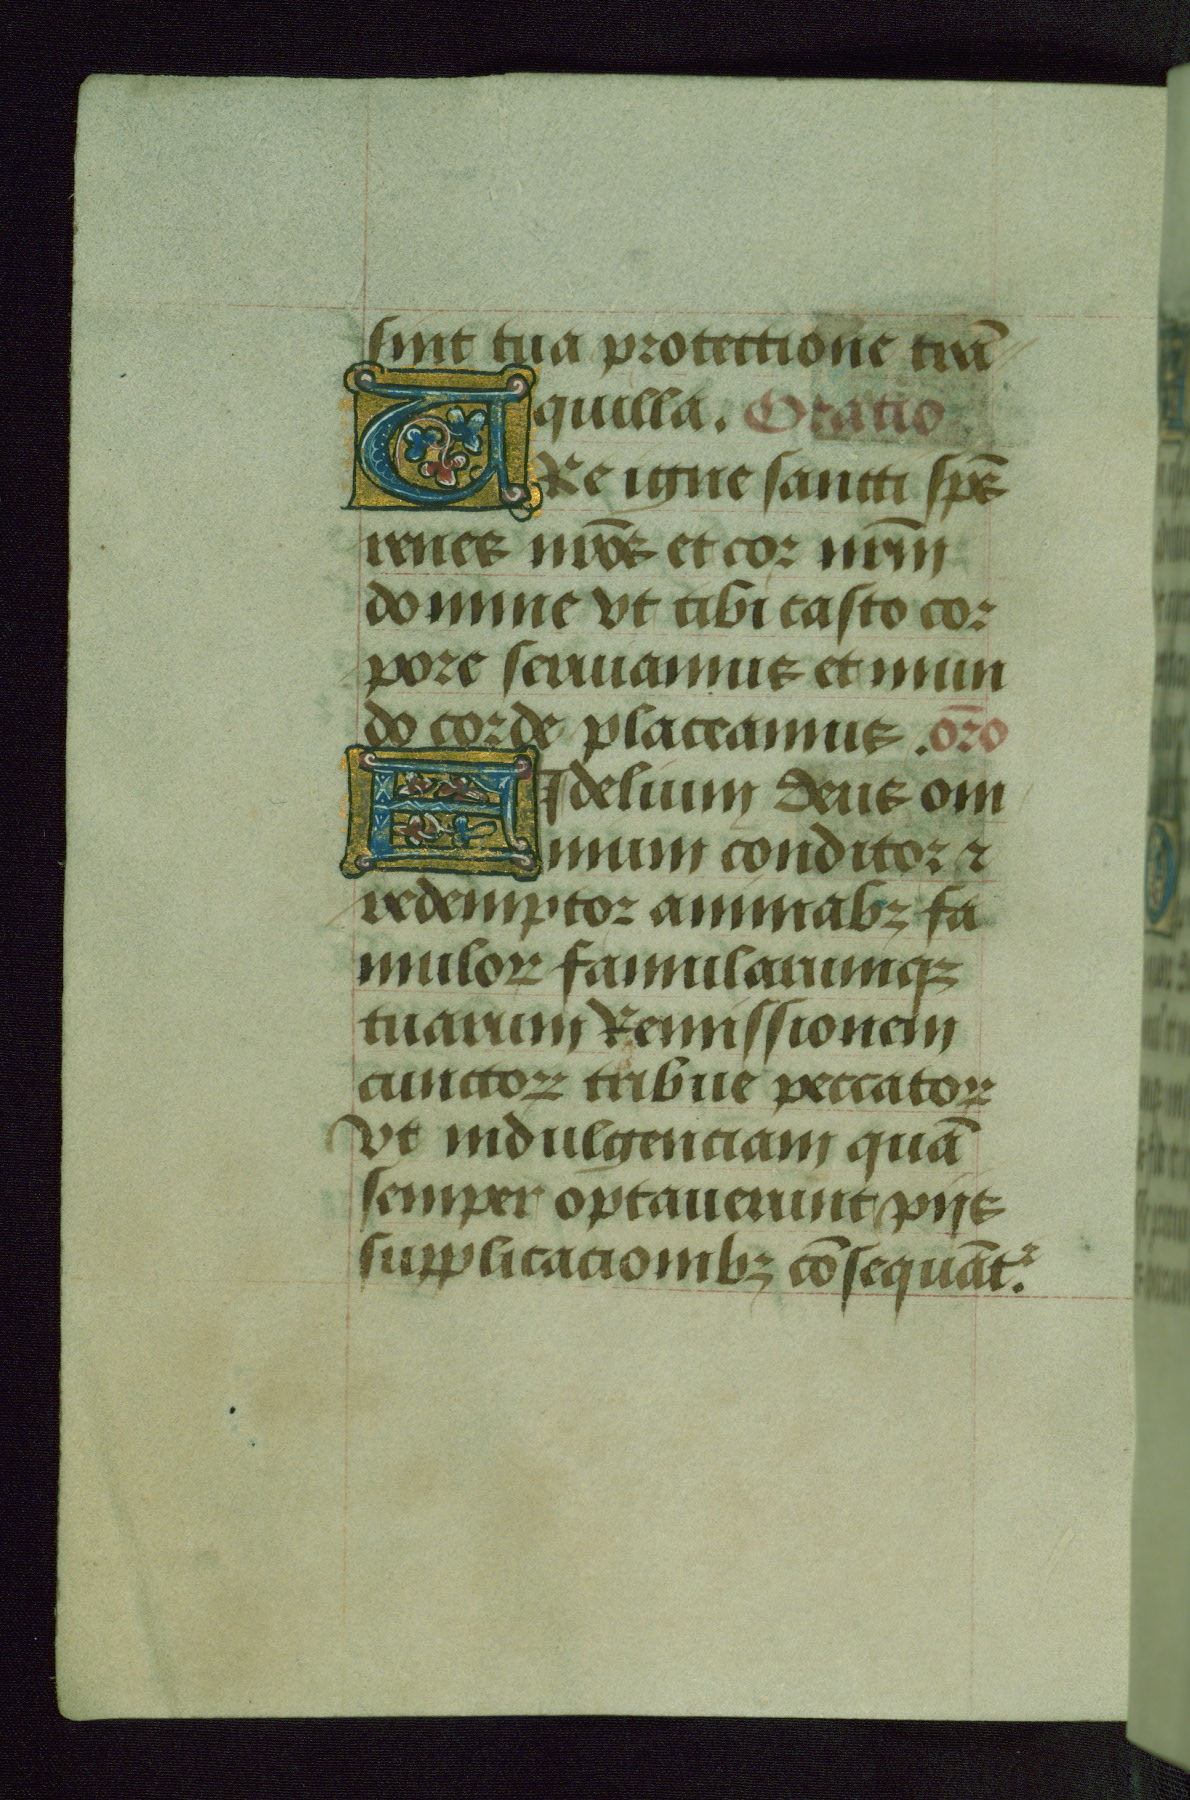 sint tua protectione trā
quilla. Oratio
URe igne sancti sp̄s
renes nr̄os et cor nr̄m
domine vt tibi casto cor
pore seruiamus et mun
do corde placeamus. or̄o
FIdelium deus om
nium conditor ⁊
redemptor animabꝫ fa
muloꝝ famularumqꝫ
tuarum Remissionem
cunctoꝝ tribue peccatoꝝ
vt indulgenciam quā
semper optauerunt pijs
supplicacionibꝫ cōsequāt᷑.